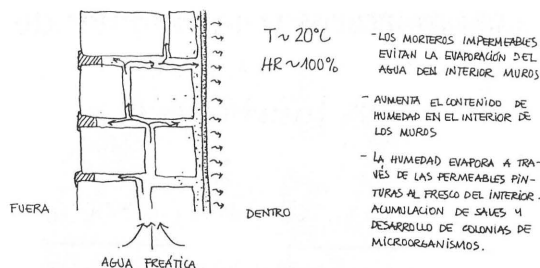 T ~ 20°C
HR ~ 100%
- LOS MORTEROS IMPERMEABLES
EVITAN LA EVAPORACIÓN DEL
AGUA DEN INTERIOR MUROS
- AUMENTA EL CONTENIDO DE
HUMEDAD EN EL INTERIOR DE
LOS MUROS
- LA HUMEDAD EVAPORA A TRA-
VÉS DE LAS PERMEABLES PIN-
TURAS AL FRESCO DEL INTERIOR.
ACUMULACION DE SALES Y
DESARROLLO DE COLONIAS DE
MICROORGANISMOS.
FUERA
DENTRO
AGUA FREÁTICA